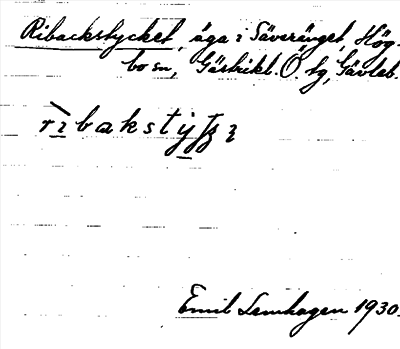 Ribackstycket, äga i Säveränget, Hög-
bo sn, Gästrikl. Ö. tg, Gävleb.
rìbakstyʃʒ ʒ
Emil Lamhagen 1930.